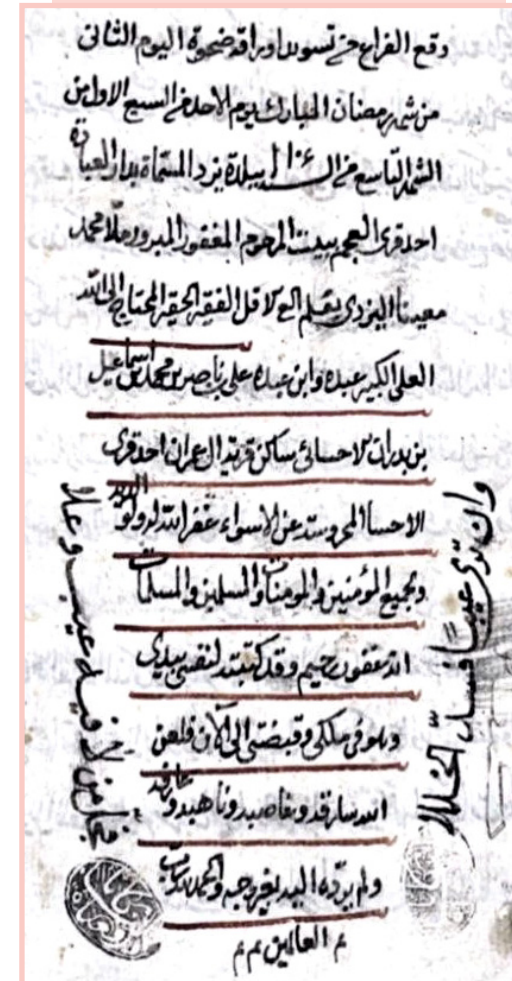 وقع الفراغ من تسويد اوراقه ضحوة اليوم الثاني
من شهر رمضان المبارك يوم الاحد في السبع الاول من
الشهر التاسع من السنه ببلدة يزد المسماة بدار العبادة
احد قرى العجم ببيت المرحوم المغفور المبرور ملا محمد
معينا اليزدي بقلم الاقل الفقير الحقير المحتاج الى الله
العلي الكبير عبده وابن عبده علي بن ناصر بن محمد بن اسماعيل
بن بدران الاحسائي ساكن قرية ال عمران احد قرى
الاحسا المحروسة عن الاسواء غفر الله له ولوالديه
ولجميع المؤمنين والمومنات والمسلمين والمسلمات
انه غفور رحيم وقد كتبته لنفسي بيدي
وهو في ملكي وقبضتي الى الآن فلعن
الله سارقه وغاصبه وناهبه و
ولم يرده اليه بغير وجه والحمد لله رب
العالمين م م
وان ترى عيبا فسد الخللا
جل من لا فيه عيب وعلا